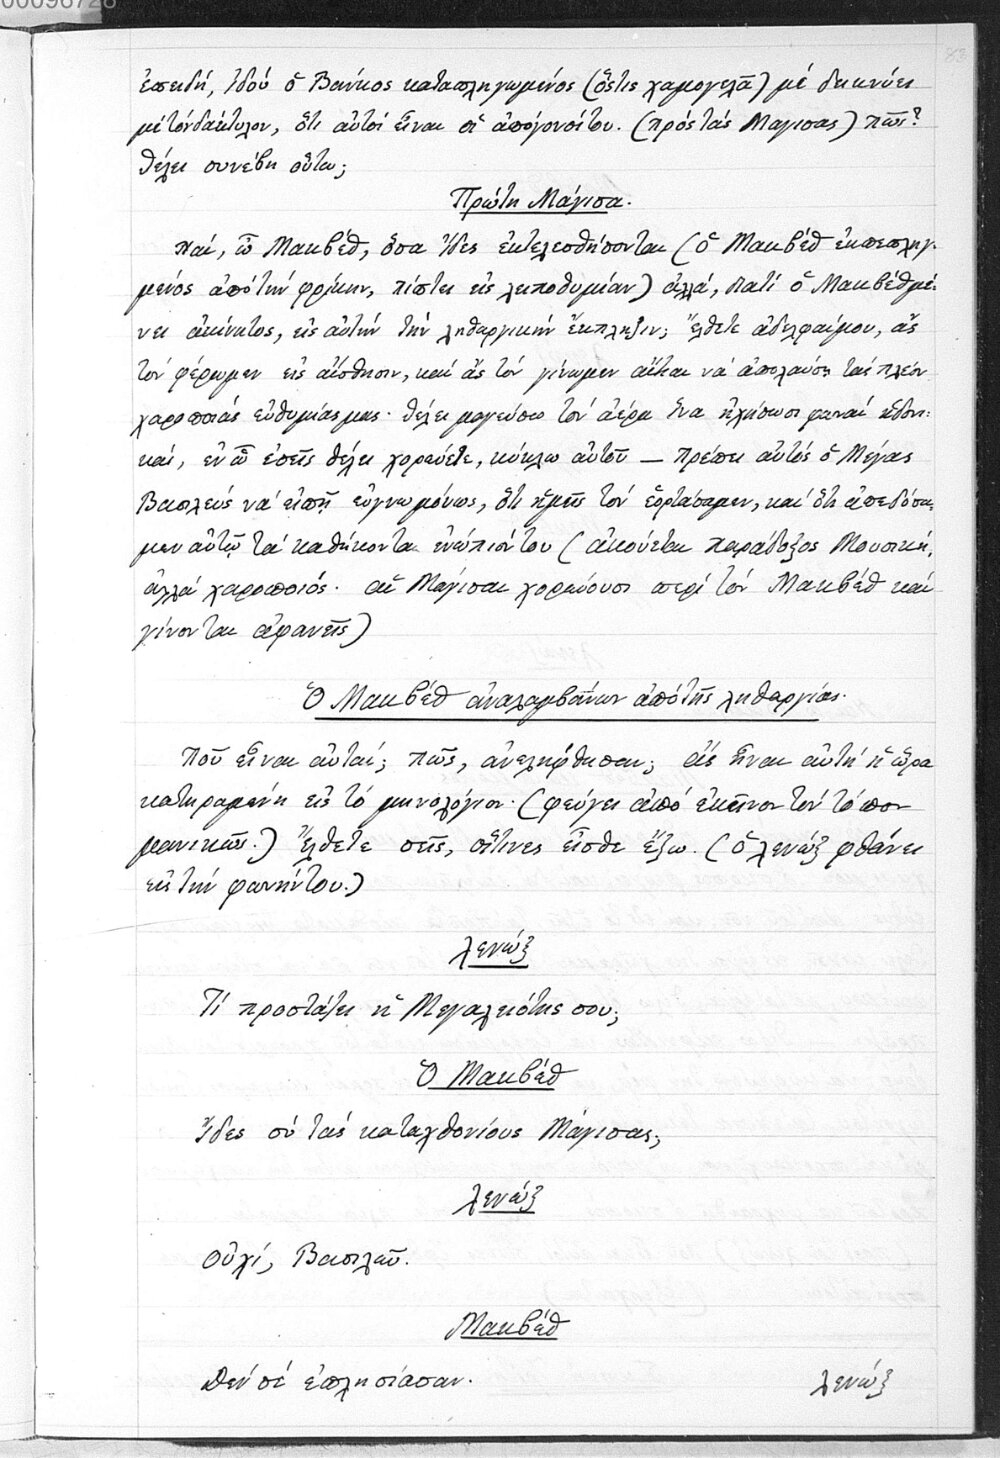 00096728
83
ἐπειδή, ἰδού ὁ Βάνκος καταπληγωμένος (ὅστις χαμογελᾶ) μέ δεικνύει
μέ τόν δάκτυλον, ὅτι αὐτοί εἶναι οἱ ἀπόγονοί του. (πρός τάς Μάγισας) πῶς?
θέλει συνέβη οὕτω;
Πρώτη Μάγισα.
Ναί, ὦ Μακβέθ, ὅσα ἴδες ἐκτελεσθήσονται (ὁ Μακβέθ ἐκπεπληγ-
μένος ἀπό τήν φρίκην, πίπτει εἰς λειποθυμίαν) ἀλλά, διατί ὁ Μακβέθ μέ-
νει ἀκίνητος, εἰς αὐτήν τήν ληθαργικήν ἔκπληξιν; ἔλθετε ἀδελφαί μου, ἄς
τόν φέρωμεν εἰς αἴσθησιν, καί ἄς τόν γίνωμεν αἴτιαι νά ἀπολαύσῃ τάς πλέον
χαροποιάς εὐθυμίας μας. θέλει μαγεύσω τόν ἀέρα ἵνα ἠχήσωσι φωναί ἡδονι-
καί, ἐν ᾧ ἐσεῖς θέλει χορεύετε, κύκλω αὐτοῦ — πρέπει αὐτός ὁ Μέγας
Βασιλεύς νά εἰπῇ εὐγνωμόνως, ὅτι ἡμεῖς τόν ἑορτάσαμεν, καί ὅτι ἀπεδόσα-
μεν αὐτῷ τά καθήκοντα ἐνώπιόν του (ἀκούεται παράδοξος Μουσική,
ἀλλά χαροποιός. αἱ Μάγισαι χορεύουσι περί τόν Μακβέθ καί
γίνονται ἀφανεῖς)
Ὁ Μακβέθ ἀναλαμβάνων ἀπό τῆς ληθαργίας.
Ποῦ εἶναι αὐταί; πῶς, ἀνελήφθησαν; ἄς ἦναι αὐτή ἡ ὥρα
κατηραμένη εἰς τό μηνολόγιον. (φεύγει ἀπό ἐκεῖνον τόν τόπον
μανικῶς.) Ἔλθετε σεῖς, οἵτινες εἶσθε ἔξω. (ὁ Λενώξ φθάνει
εἰς τήν φωνήν του.)
Λενώξ
Τί προστάζει ἡ Μεγαλειότης σου;
Ὁ Μακβέθ
Ἴδες σύ τάς καταχθονίους Μάγισας;
Λενώξ
Οὐχί, Βασιλεῦ.
Μακβέθ
Δέν σέ ἐπλησίασαν.
Λενώξ